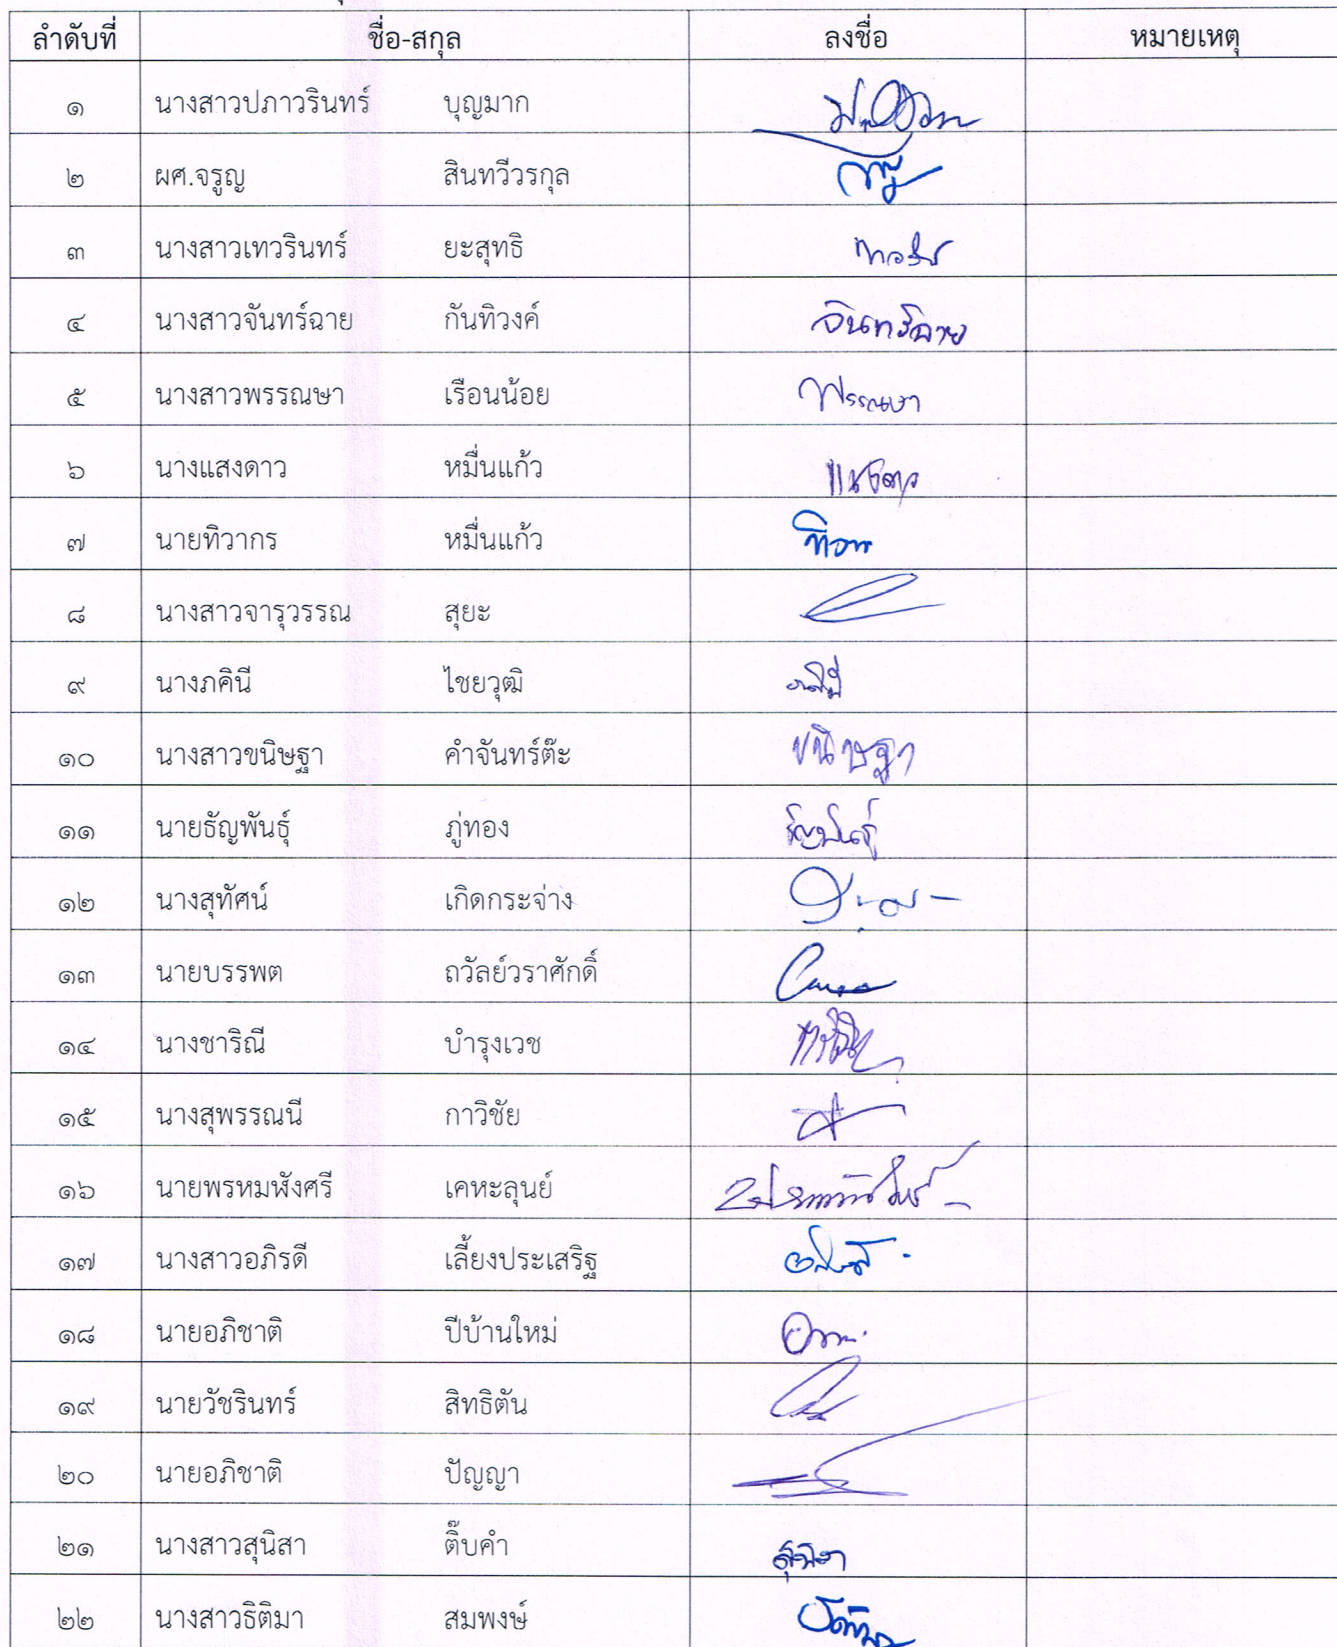 ลำดับที่ ชื่อ-สกุล ลงชื่อ หมายเหตุ
๑ นางสาวปภาวรินทร์ บุญมาก
๒ ผศ.จรูญ สินทวีวรกุล
๓ นางสาวเทวรินทร์ ยะสุทธิ
๔ นางสาวจันทร์ฉาย กันทิวงค์ จันทร์ฉาย
๕ นางสาวพรรณษา เรือนน้อย พรรณษา
๖ นางแสงดาว หมื่นแก้ว แสงดาว
๗ นายทิวากร หมื่นแก้ว
๘ นางสาวจารุวรรณ สุยะ
๙ นางภคินี ไชยวุฒิ
๑๐ นางสาวขนิษฐา คำจันทร์ต๊ะ ขนิษฐา
๑๑ นายธัญพันธุ์ ภู่ทอง ธัญพันธุ์
๑๒ นางสุทัศน์ เกิดกระจ่าง
๑๓ นายบรรพต ถวัลย์วราศักดิ์
๑๔ นางชาริณี บำรุงเวช
๑๕ นางสุพรรณนี กาวิชัย
๑๖ นายพรหมพังศรี เคหะลุนย์
๑๗ นางสาวอภิรดี เลี้ยงประเสริฐ
๑๘ นายอภิชาติ ปีบ้านใหม่
๑๙ นายวัชรินทร์ สิทธิตัน
๒๐ นายอภิชาติ ปัญญา
๒๑ นางสาวสุนิสา ติ๊บคำ สุนิสา
๒๒ นางสาวธิติมา สมพงษ์